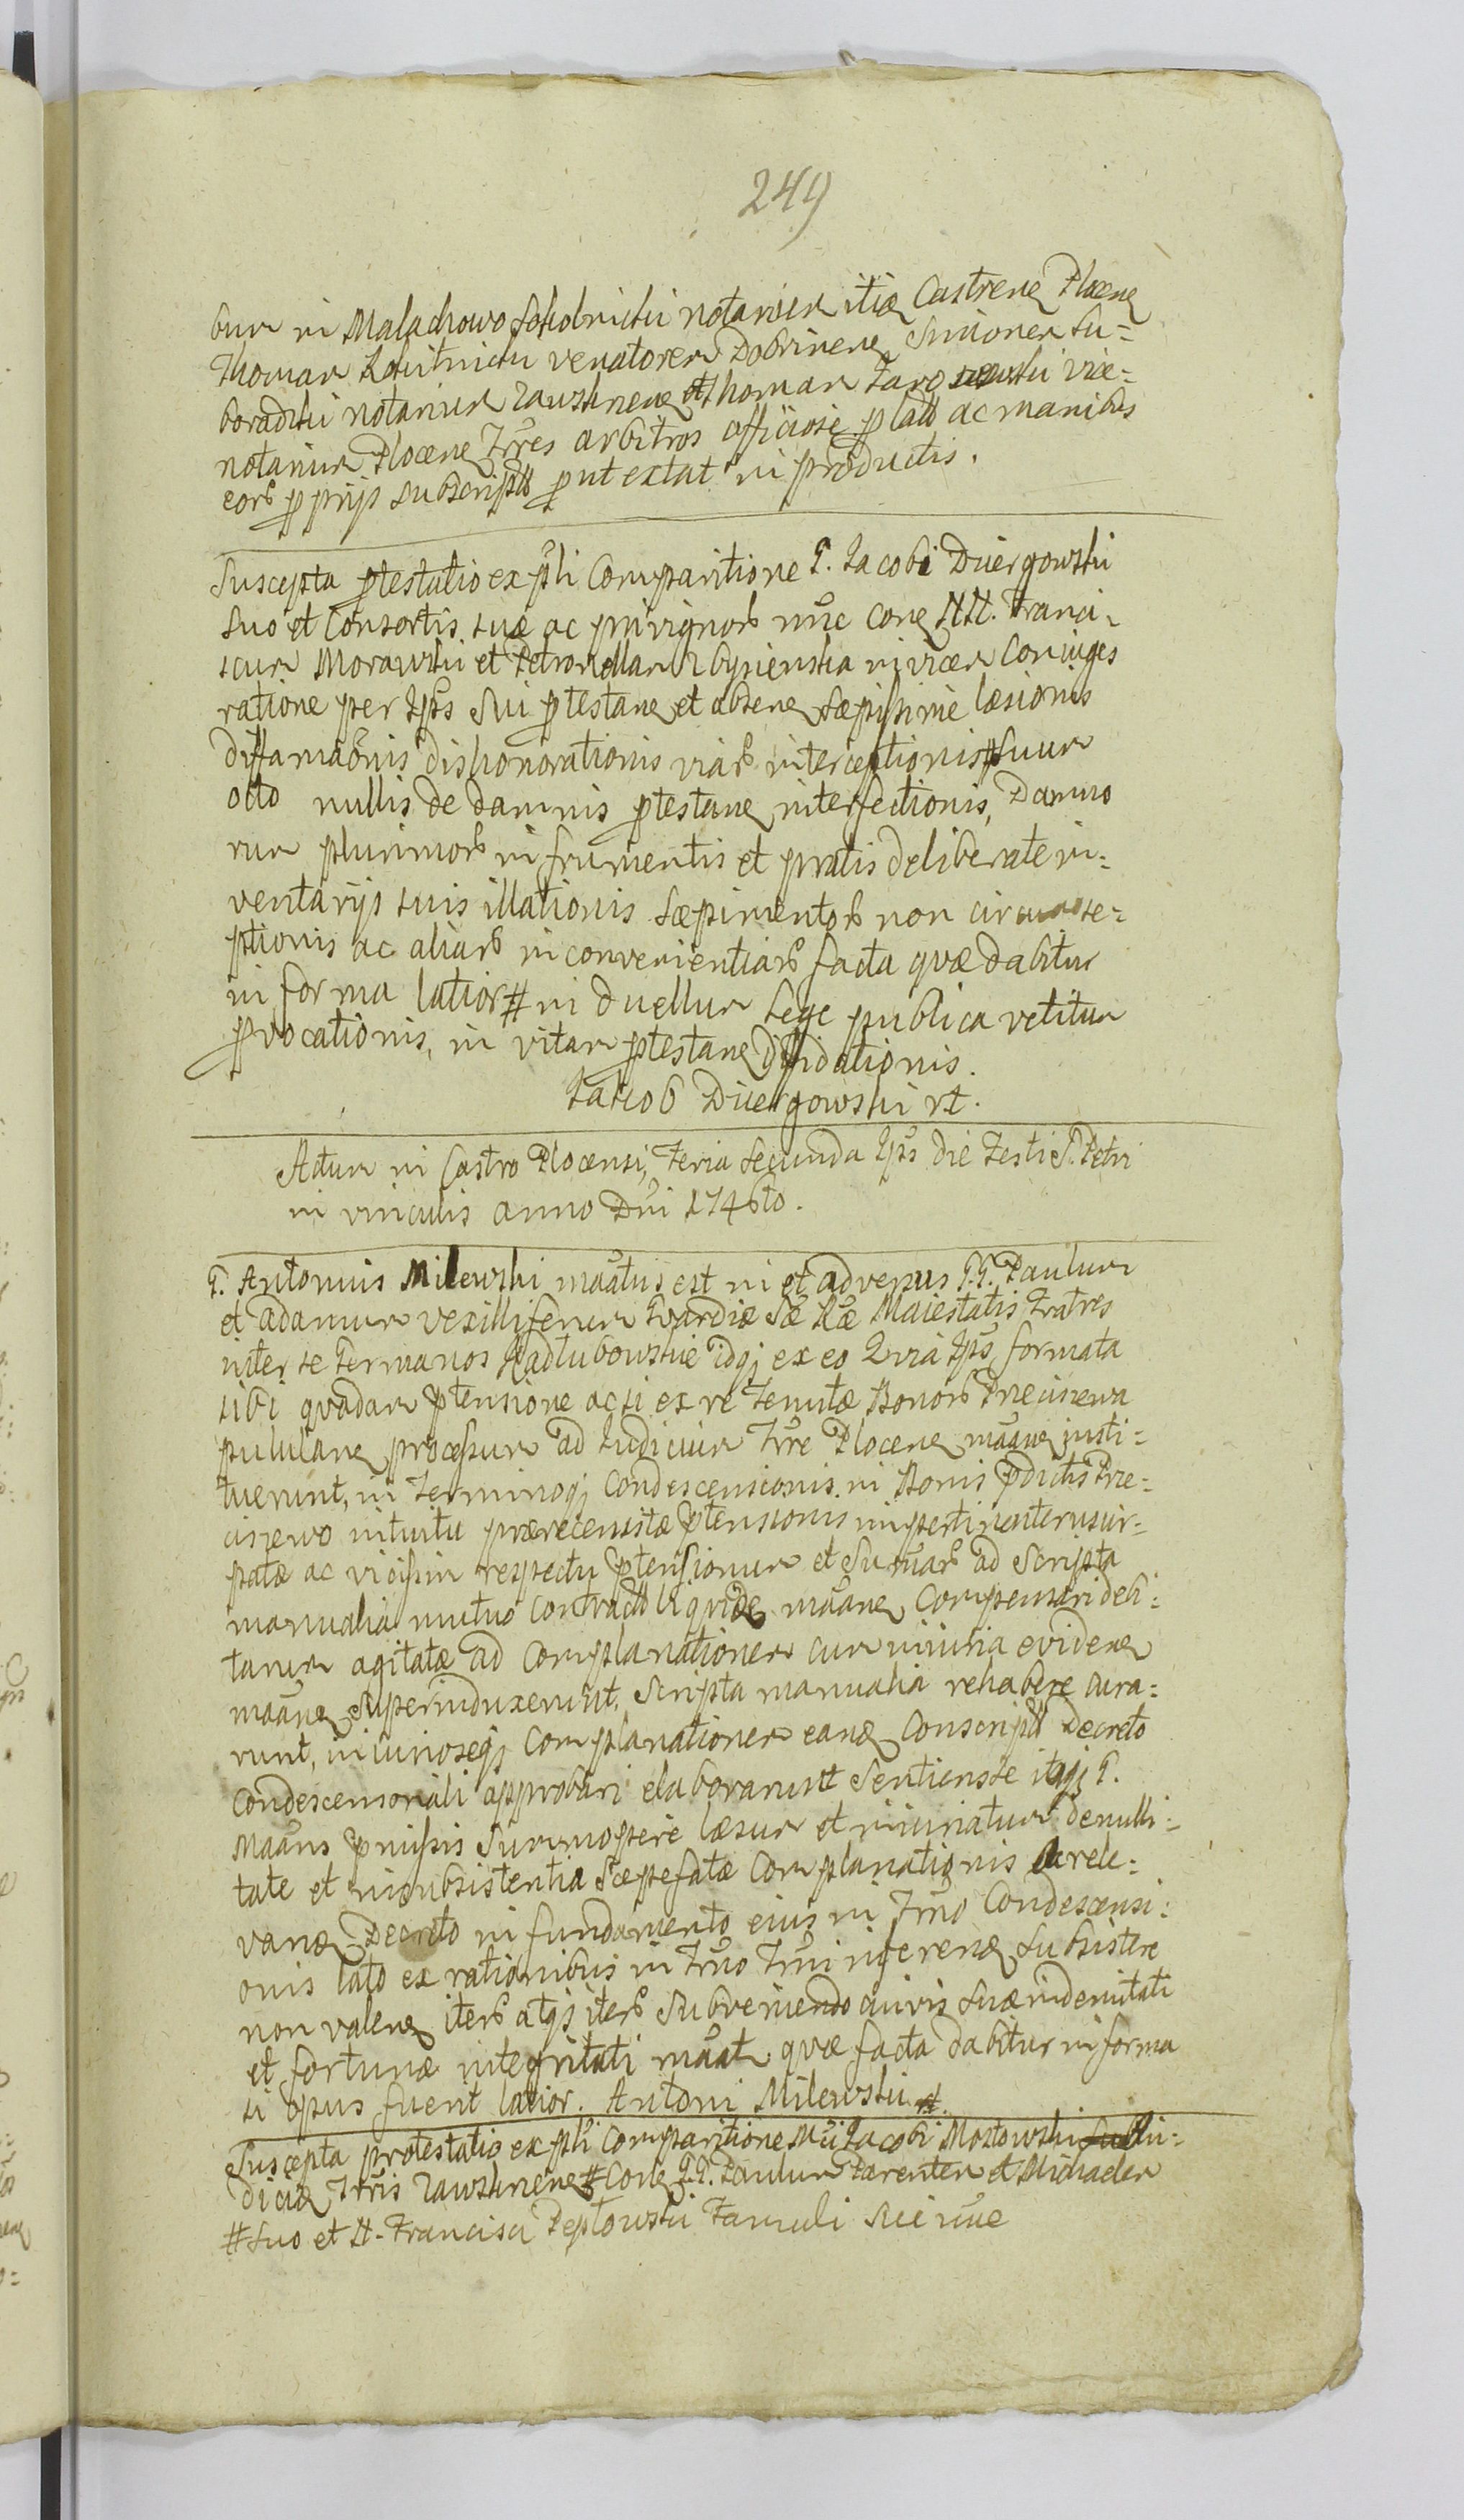 249
bum in Malachowo Sokolnicki notarium itiq Castrenȩ Plocenȩ
Thomam venatorem Dobrinenȩ Simonem Su-
boradzki notarium Zawskrnenȩ et Thomam vice-
notarium Plocenȩ Trres arbitros officiose ꝑ lato ac manibus
eorꝫ ꝓprijs subscripto ꝓut extat in productis.
Suscepta ꝓtestatio ex pͥti Comparitione G. Jacobi Dziergowski
suo et Consortis suæ ac privignorꝫ nnͥe Conȩ NN. Franci-
scum Morawski et Petronellam Zbyszenska invicem Coniuges
ratione per Ipͥs Sui ꝓtestanȩ et absenȩ sæpissime læsionis
diffamaõnis dishonorationis viarꝫ interceptionis # Suum
octo nullis de damnis ꝓtestanȩ interfectionis, Damno
rum plurimorꝫ in frumentis et pratis deliberate in-
ventarijs suis illationis sæpimentorꝫ non circumse-
ptionis ac aliarꝫ inconvenientiarꝫ facta quæ dabitur
in forma latior # in duellum Lege publica vetitum
ꝓvocationis, in vitam ꝓtestanȩ diffidationis.
Jakob Dziergowski mp.
Actum in Castro Plocensi, Feria Secunda Ipͥs die Festi S. Petri
in vinculis anno Dni 1746to.
G. Antonius Milewski maãtus est in et adversus G.G. Paulum
et Adamum vexilliferum Gvardiæ Sæ Ræ Maiestatis Fratres
inter se Germanos Radlubowskie idqȝ ex eo Quia Ipͥs formata
sibi quadam ꝓtensione acsi ex re Tenutæ Bonorꝫ Przeciszewa
pululanȩ processum ad Judicium Trre Plocenȩ maãnȩ insti-
tuerunt, in Terminoqȝ Condescensionis in Bonis pdictis Prze-
ciszewo intuitu præerecensitæ ꝓtensionis impertinenter usur-
patæ ac vicissim respectu ꝓtensionum et Sumarꝫ ad Scripta
manualia mutuo contracto liqvidȩ maãnȩ Compensari debi-
tarum agitatæ ad Complanationem cum iniuria evidenȩ
maãnȩ Superinduxerunt. Scripta manualia rehabere cura-
runt, iniurioseqȝ Complanationem eanȩ Conscripto Decreto
Condescensionali approbari elaborarunt Sentiens se itaqȝ G.
Maãns pmissis Summopere læsum et iniuriatum de nulli-
tate et insubsistentia Sæpefatæ Complanationis ac rele-
vanȩ Decreto in fundamento eius in Trno Condescensi-
onis lato ex rationibus in Trno Trni inferenȩ Subsistere
non valenȩ iterꝫ atqȝ iterꝫ Subveniendo iuris suæ indemitati
et fortunæ integritati maãt quæ facta dabitur in forma
si opus fuerit latior. Antoni Milewski mp.
Suscepta protestatio ex pͥti Comparitione Mci Jacobi Mostowski Ju-
dicis Trris Zawskrnenȩ # Conȩ G.G. Paulum Parentem et Michaelem
# Suo et N. Francisci Peplowski Famuli Sui nnͥe